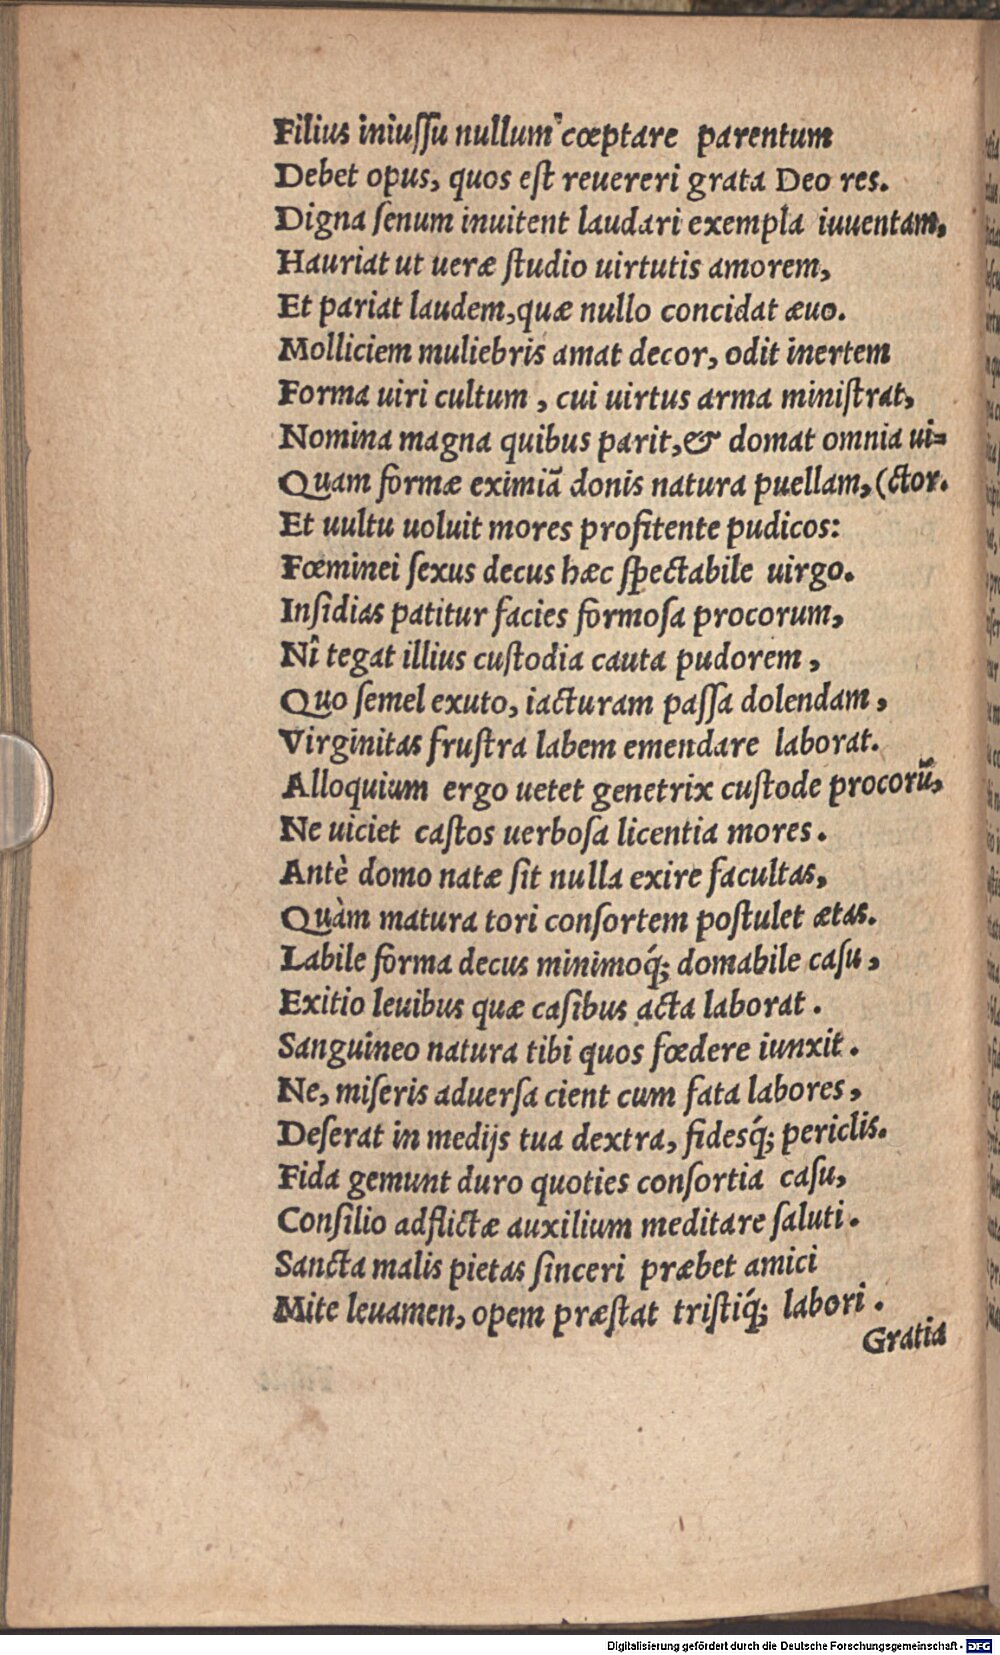 Filius iniuſſu nullum cœptare parentum
Debet opus, quos eſt reuereri grata Deo res.
Digna ſenum inuitent laudari exempla iuuentam,
Hauriat ut ueræ ſtudio uirtutis amorem,
Et pariat laudem, quæ nullo concidat æuo.
Molliciem muliebris amat decor, odit inertem
Forma uiri cultum, cui uirtus arma miniſtrat,
Nomina magna quibus parit, & domat omnia ui=
Quam formæ eximiā donis natura puellam, (ctor.
Et uultu uoluit mores profitente pudicos:
Fœminei ſexus decus hæc ſpectabile uirgo.
Inſidias patitur facies formoſa procorum,
Nî tegat illius cuſtodia cauta pudorem,
Quo ſemel exuto, iacturam paſſa dolendam,
Virginitas fruſtra labem emendare laborat.
Alloquium ergo uetet genetrix cuſtode procorū,
Ne uiciet caſtos uerboſa licentia mores.
Antè domo natæ ſit nulla exire facultas,
Quàm matura tori conſortem poſtulet ætas.
Labile forma decus minimoq́; domabile caſu,
Exitio leuibus quæ caſibus acta laborat.
Sanguineo natura tibi quos fœdere iunxit.
Ne, miſeris aduerſa cient cum fata labores,
Deſerat in medijs tua dextra, fidesq́; periclis.
Fida gemunt duro quoties conſortia caſu,
Conſilio adflictæ auxilium meditare ſaluti.
Sancta malis pietas ſinceri præbet amici
Mite leuamen, opem præſtat triſtiq́; labori.
Gratia
Digitalisierung gefördert durch die Deutsche Forschungsgemeinschaft - DFG